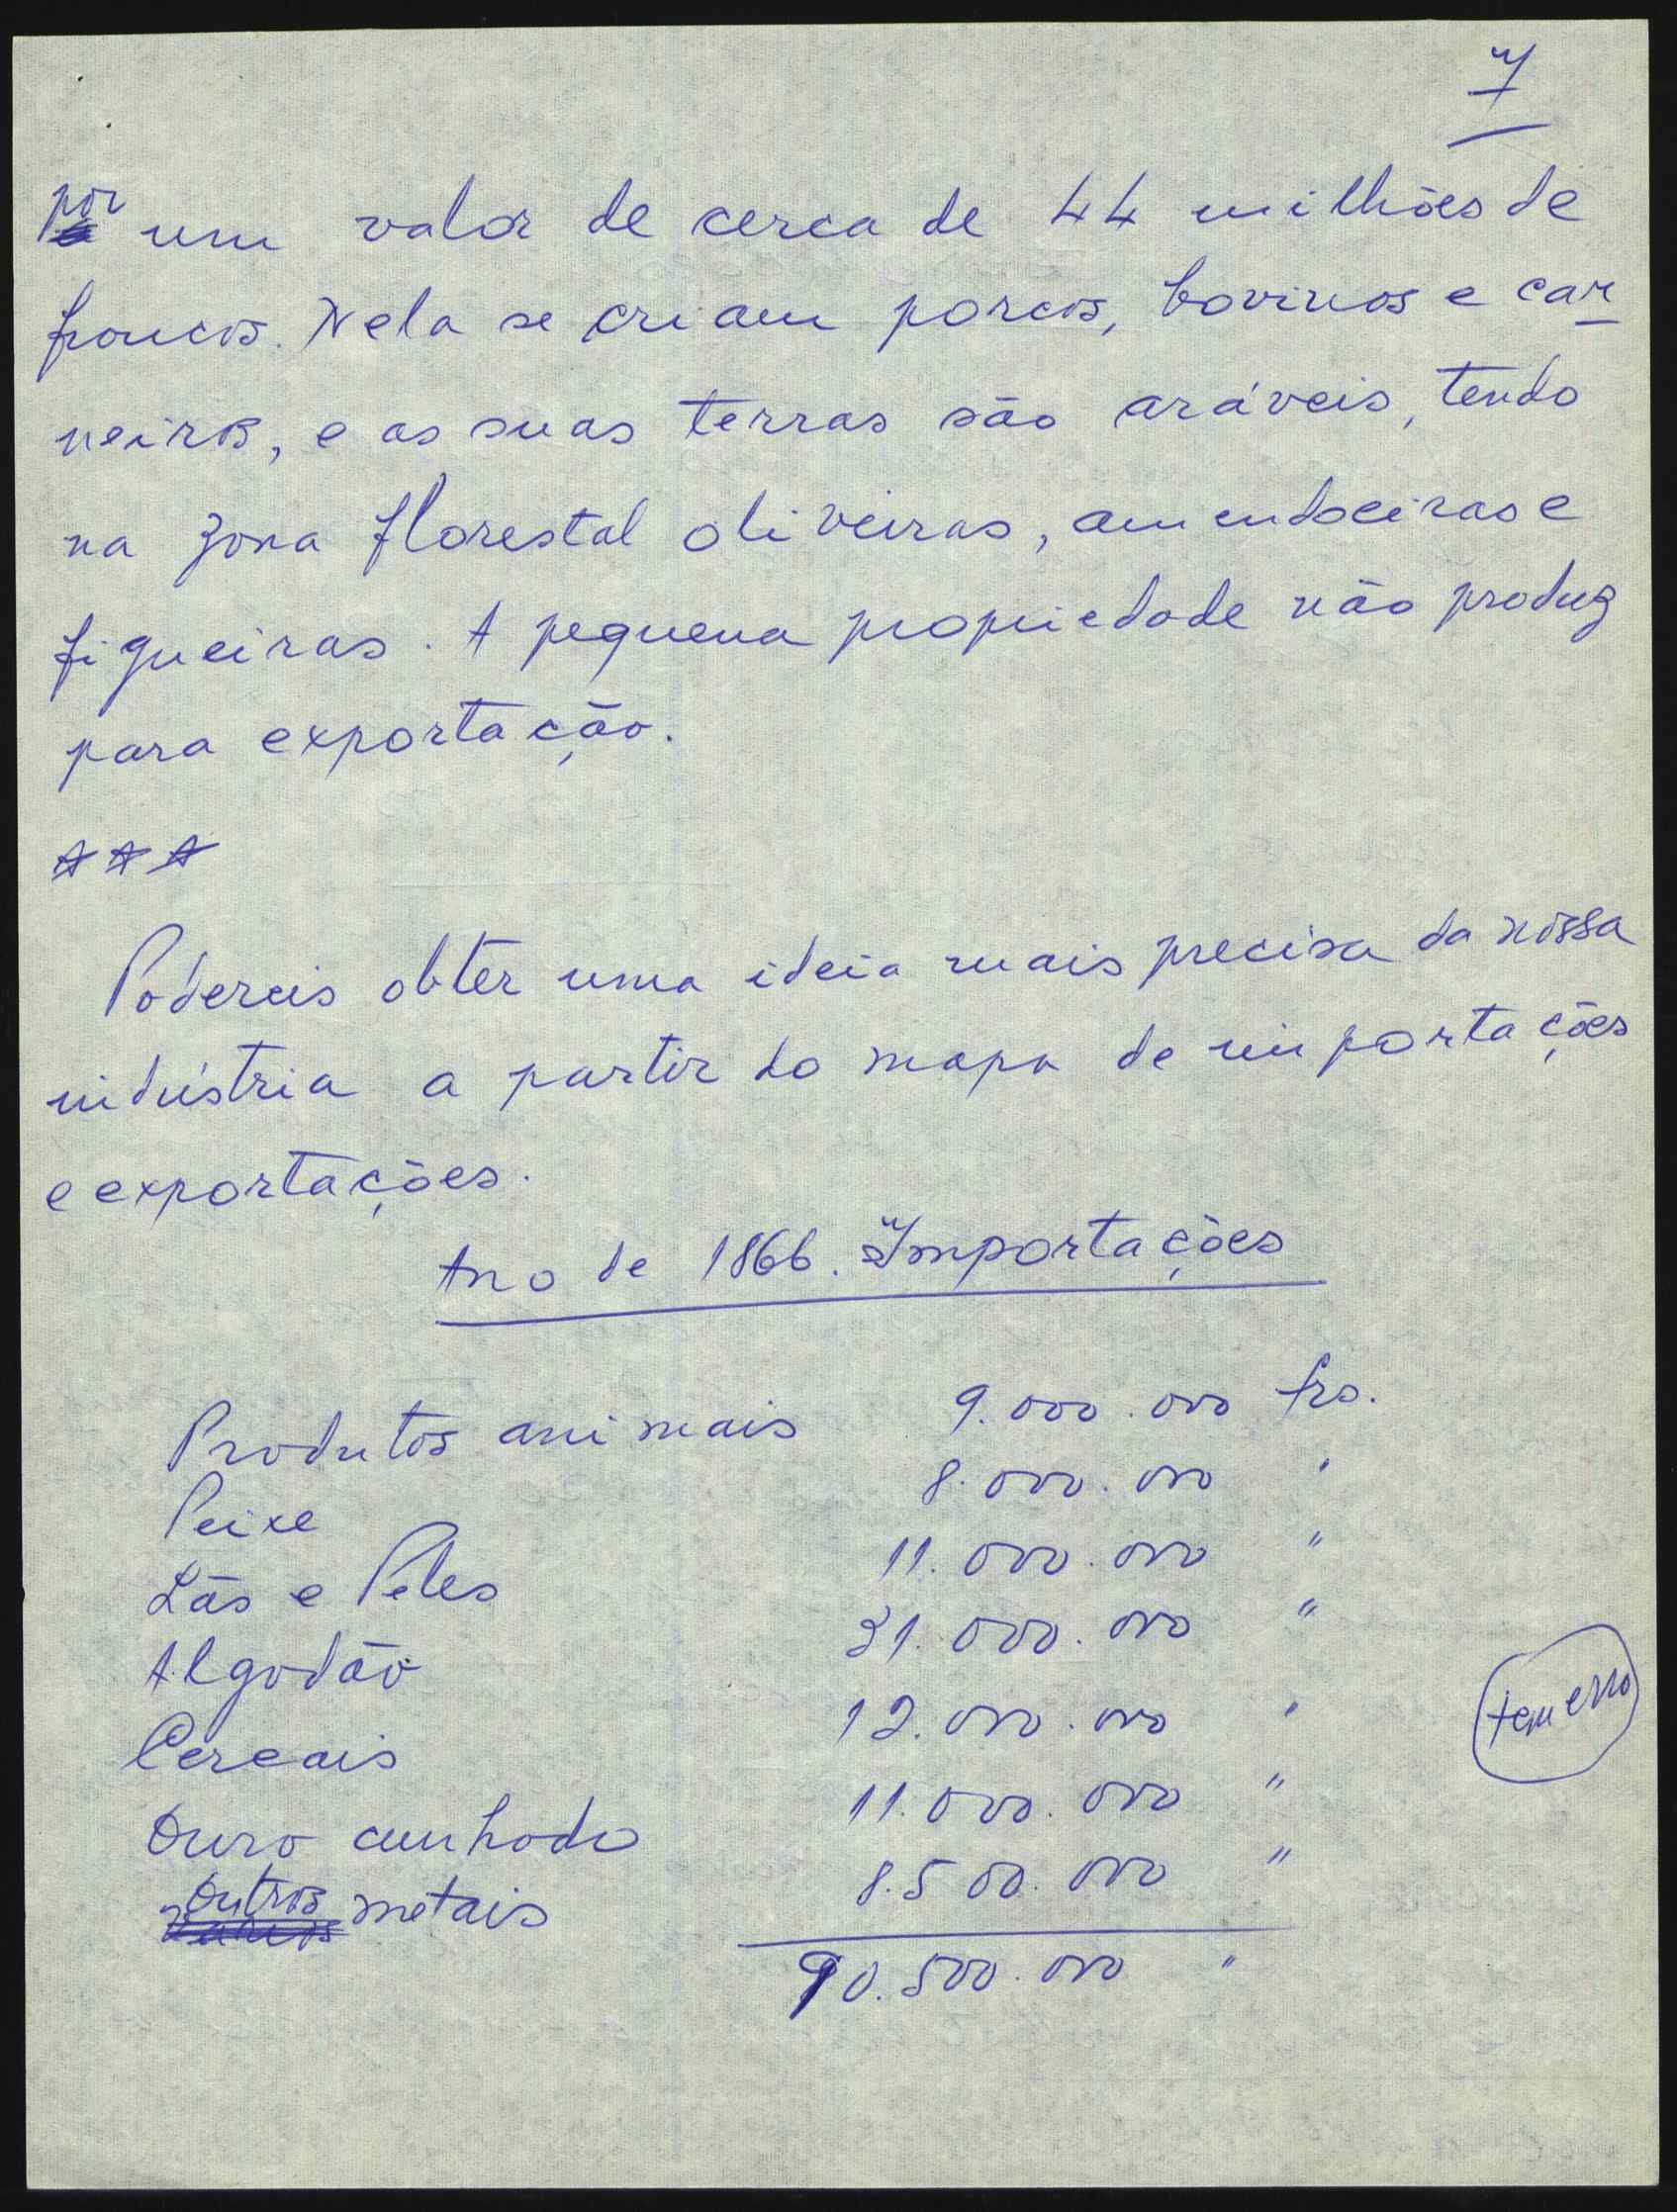 7
por um valor de cerca de 44 milhões de
francos. Nela se criam porcos, bovinos e car
neiros, e as suas terras são aráveis, tendo
na zona florestal oliveiras, amendoeiras e
figueiras. A pequena propriedade não produz
para exportação.
***
Podereis obter uma ideia mais precisa da nossa
indústria a partir do mapa de importações
e exportações.
Ano de 1866. Importações
Produtos animais 9.000.000 frs.
Peixe 8.000.000 "
Lãs e Peles 11.000.000 "
Algodão 31.000.000 "
Cereais 12.000.000 "
tem erro
Ouro cunhado 11.000.000 "
Outros metais 8.500.000 "
90.500.000 "